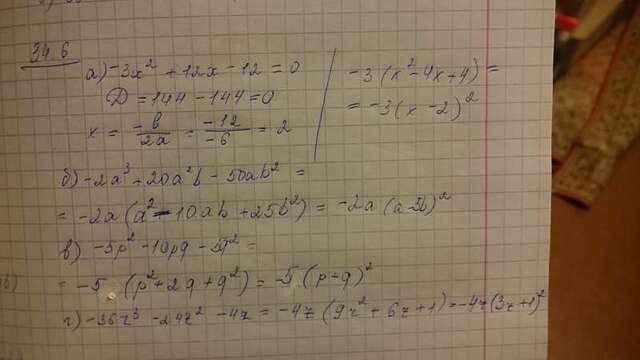 34.6
а) -3x² + 12x - 12 = 0
D = 144 - 144 = 0
x = -b/2a = -12/-6 = 2
-3(x² - 4x + 4) =
= -3(x - 2)²
б) -2a³ + 20a²b - 50ab² =
= -2a(a² - 10ab + 25b²) = -2a(a-5b)²
в) -5p² - 10pq - 5q² =
= -5 (p² + 2q + q²) = -5(p+q)²
г) -36z³ - 24z² - 4z = -4z(9z² + 6z + 1) = -4z(3z+1)²